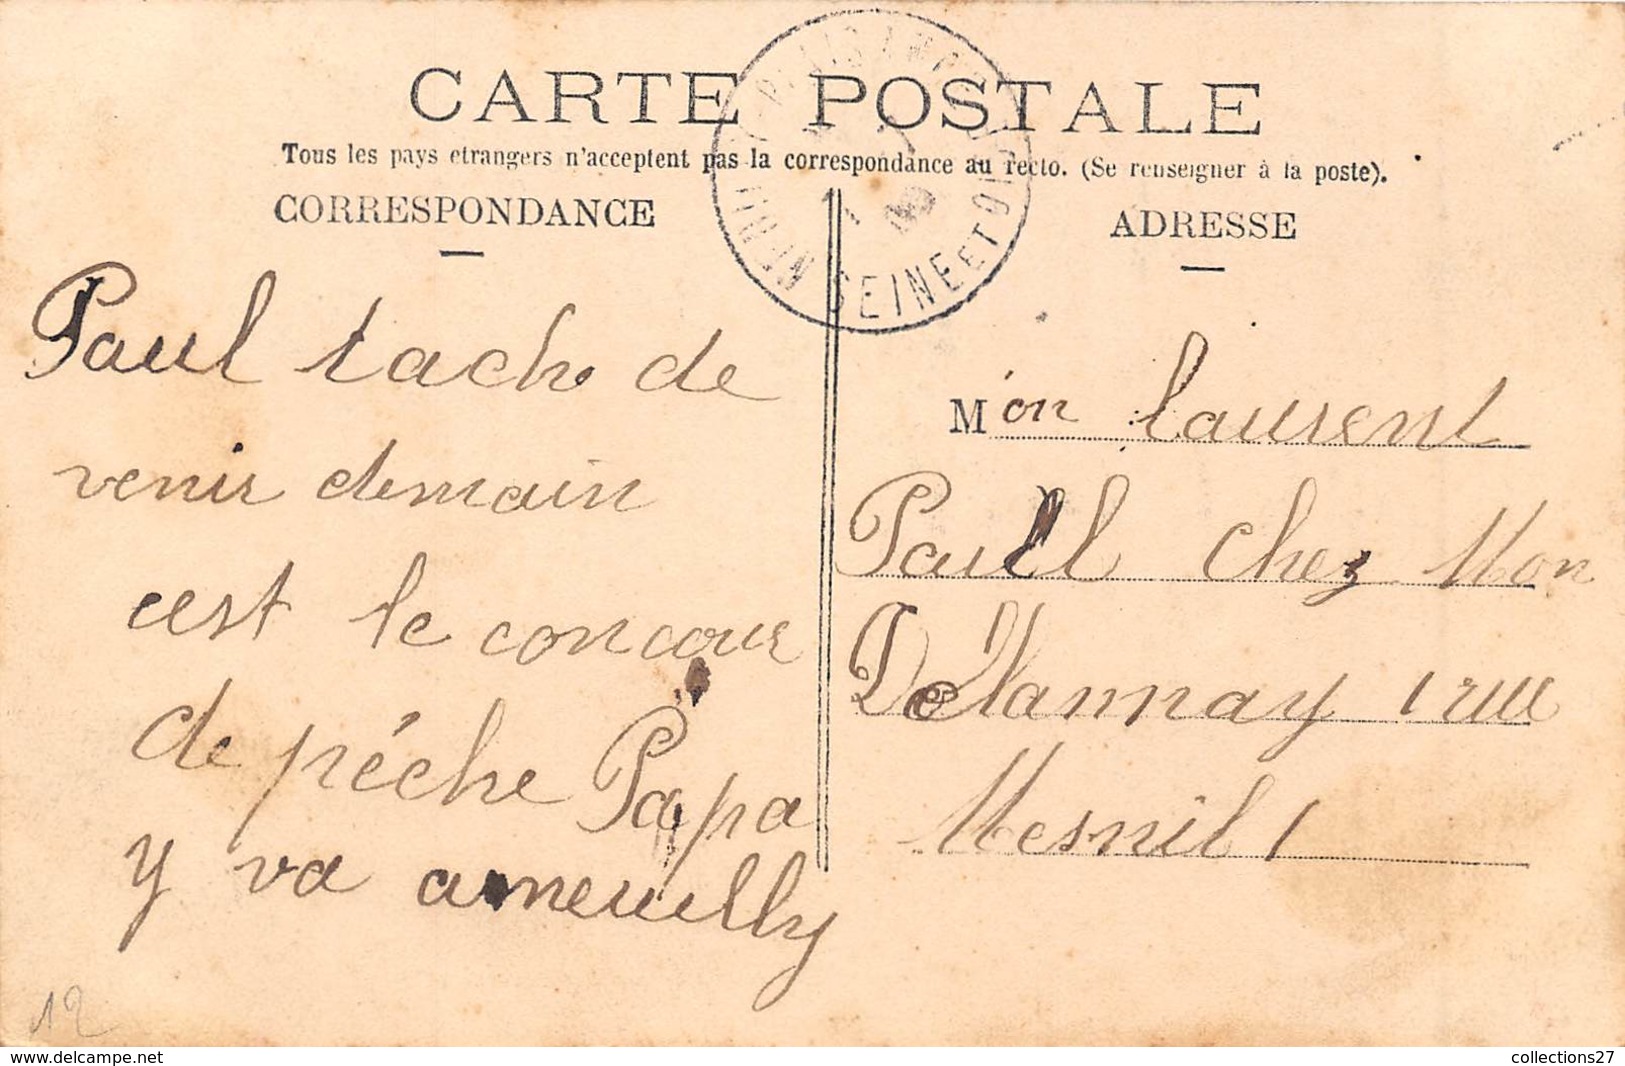 CARTE POSTALE
Tous les pays etrangers n'acceptent pas la correspondance au recto. (Se renseigner à la poste).
CORRESPONDANCE
Paul tache de
venir demain
cest le concour
de péche Papa
y va a neuilly
ADRESSE
Mon laurent
Paul chez Mon
Delannay 1 rue
Mesnil 1
SEINE ET OISE
12
delcampe.net
collections27